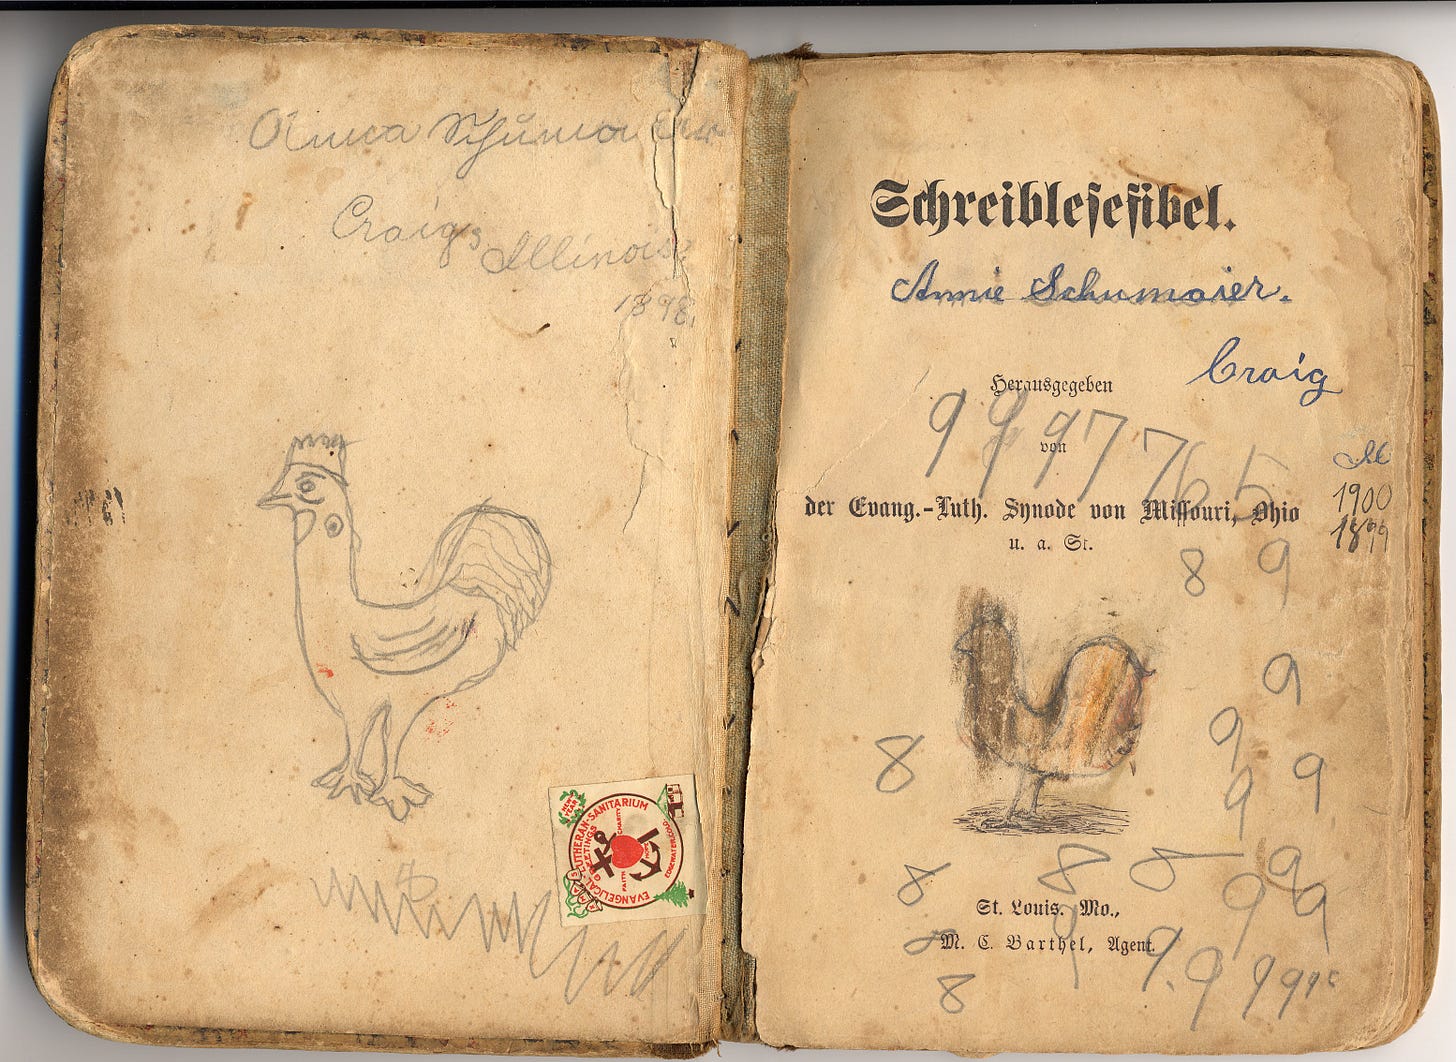 Anna Schumaier
Craig, Illinois
1898.
NEW YEAR
EVANGELICAL-LUTHERAN-SANITARIUM
GREETINGS
FAITH
CHARITY
EDGEWATER, COLO.
XMAS
Schreiblesefibel.
Annie Schumaier.
Craig
Herausgegeben
9 9 9 7 7 6 5
von
Ill
1900
der Evang.-Luth. Synode von Missouri, Ohio
1899
u. a. St.
8 9
9
9
8 9
9
8 8 8 9
9 9
St. Louis. Mo.,
8 M. C. Barthel, Agent.
8 9.9 9 9 9